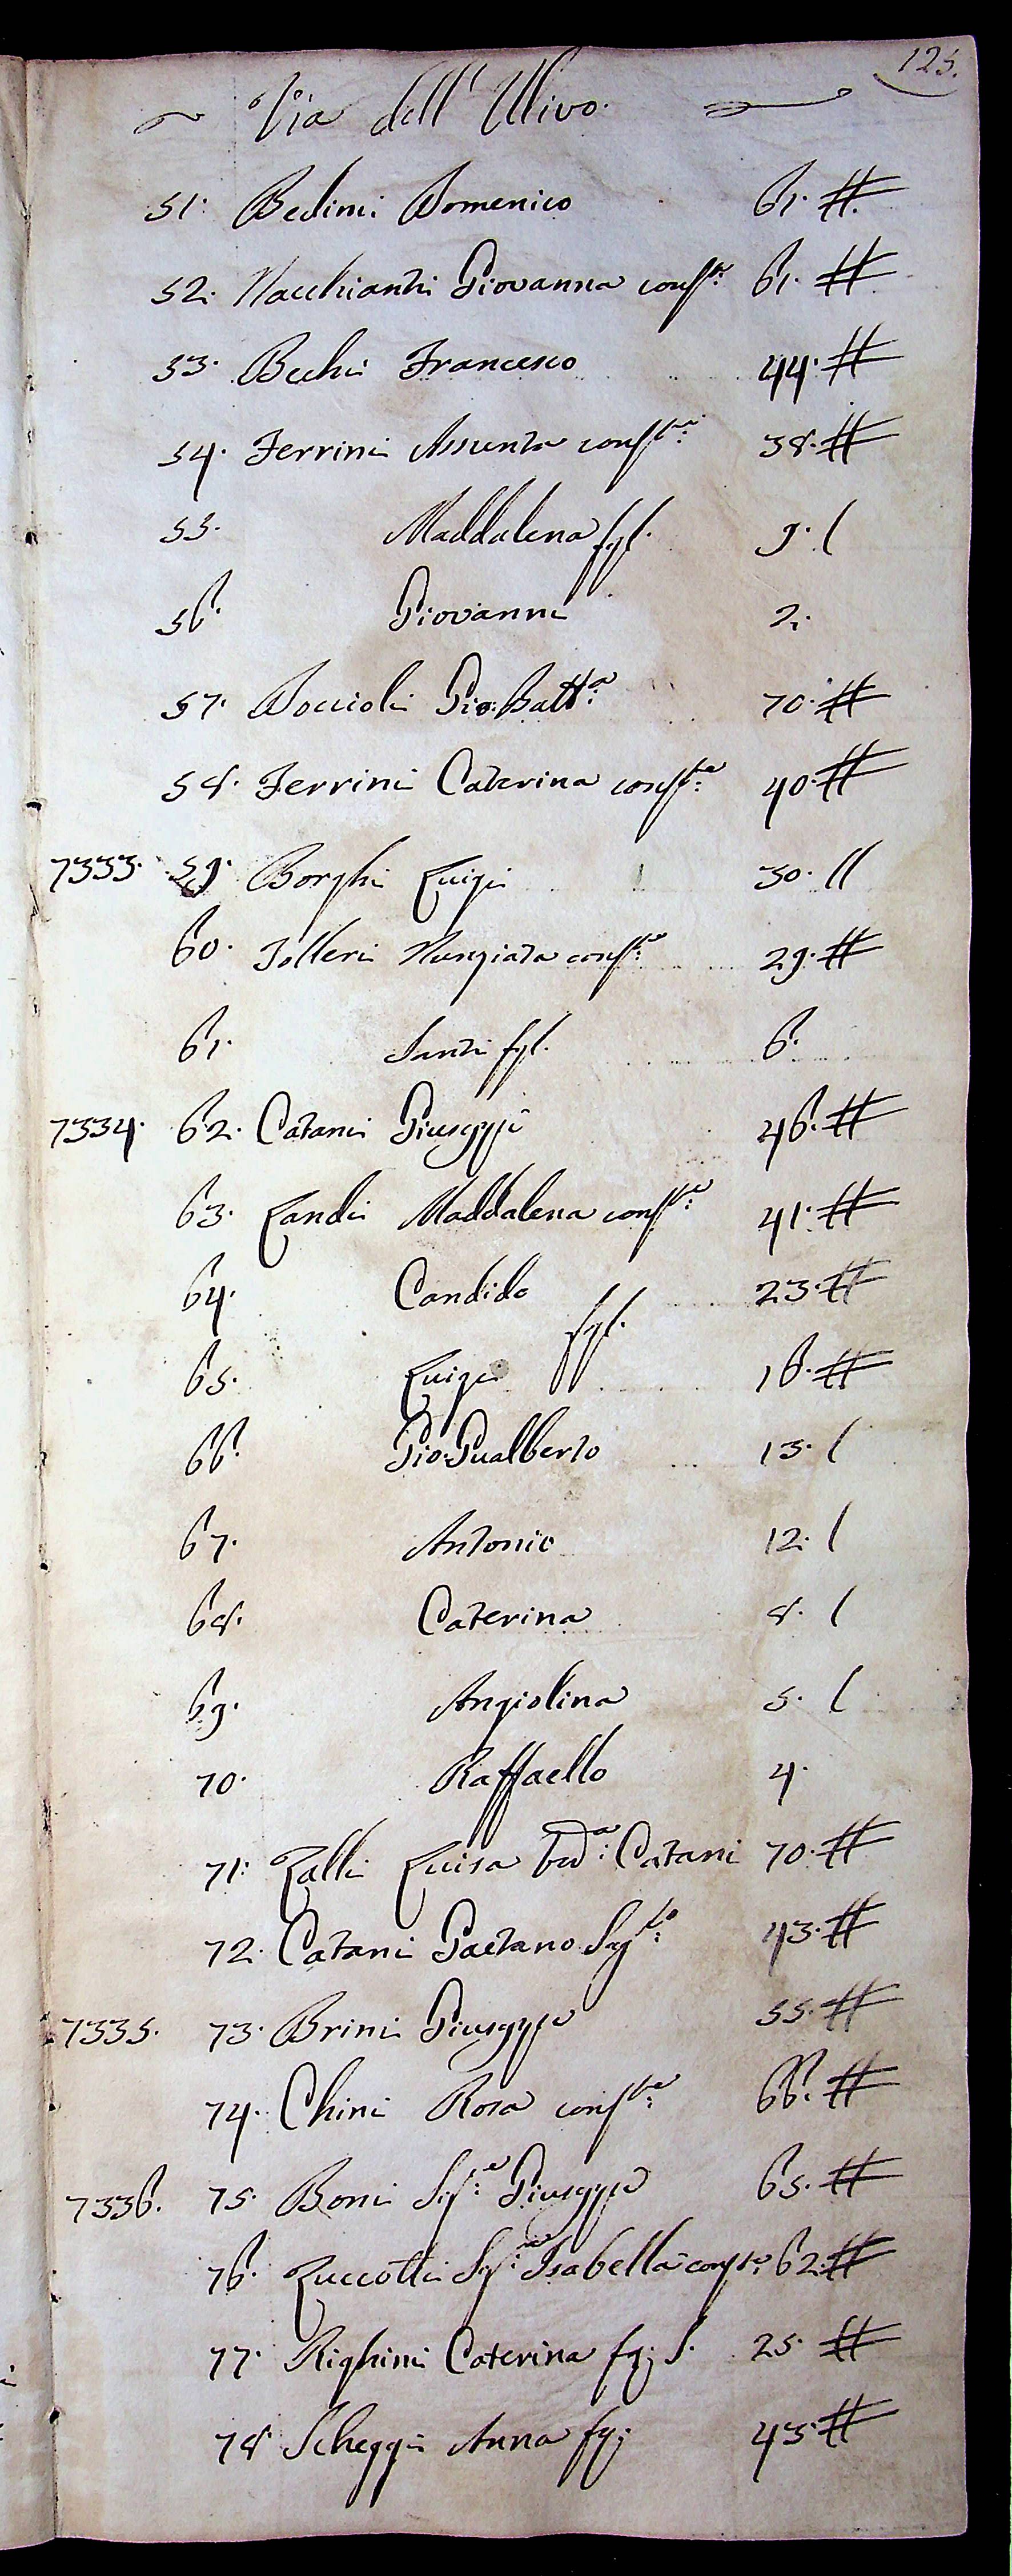 125.
Via dell' Ulivo.
51. Bedini Domenico 61. #
52. Nacchianti Giovanna conste. 61. #
53. Bechi Francesco 44. #
54. Ferrini Assunta conste. 38. #
55. Maddalena fgl. 9. (
56. Giovanni 2.
57. Boccioli Gio: Batta. 70. #
58. Ferrini Caterina conste. 40. #
7333. 59. Borghi Luigi 30. //
60. Folleri Nunziata conste. 29. #
61. Santi fgl. 6.
7334. 62. Catani Giuseppe 46. #
63. Landi Maddalena conste. 41. #
64. Candido 23. #
fgl.
65. Luigi 16. #
66. Gio: Gualberto 13. (
67. Antonio 12. (
68. Caterina 8. (
69. Angiolina 5. (
70. Raffaello 4.
71. Lalli Luisa vda. Catani 70. #
72. Catani Gaetano 43. #
7335. 73. Brini Giuseppe 55. #
74. Chini Rosa conste. 66. #
7336. 75. Boni Sige. Giuseppe 65. #
76. Zuccotti Siga. Isabella conste. 62. #
77. Righini Caterina fg; S. 25. #
78. Scheggi Anna fg; 43. #